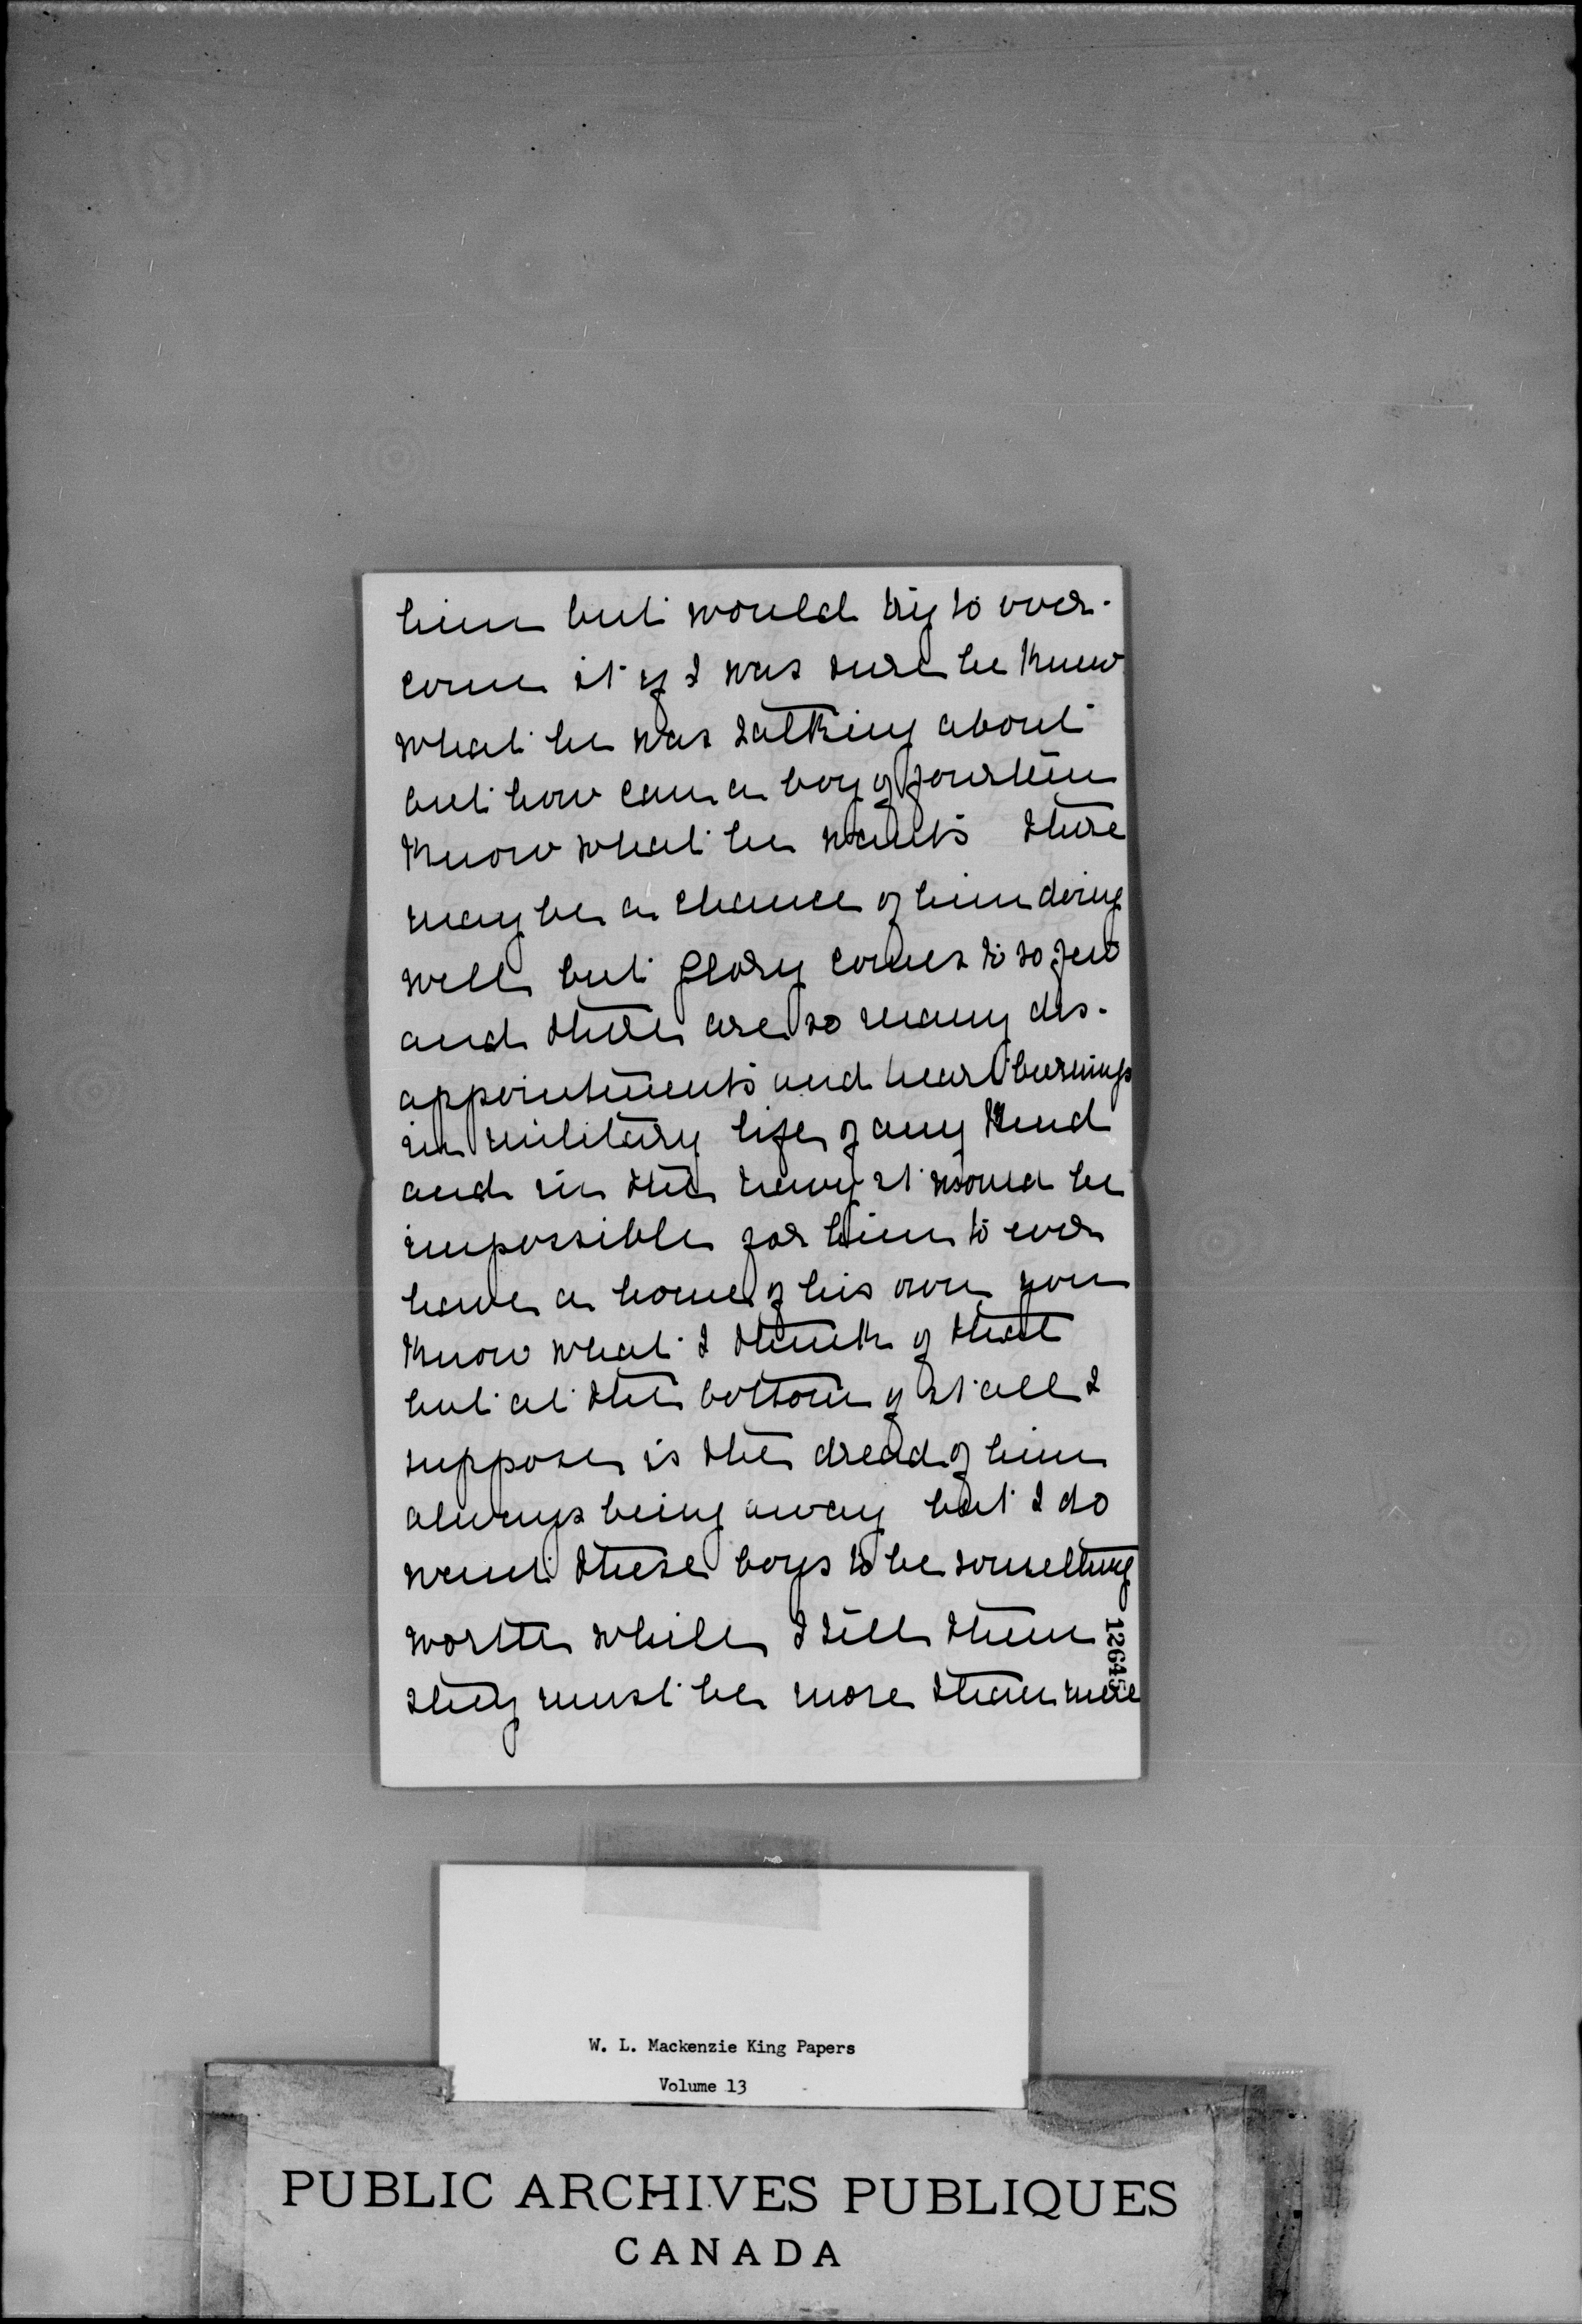 him but would try to over-
come it if I was sure he knew
what he was talking about
but how can a boy of fourteen
know what he wants there
may be a chance of him doing
well but glory comes to so few
and there are so many dis-
appointments and heart burnings
in military life of any kind
and in the navy it would be
impossible for him to ever
have a home of his own you
know what I think of that
but at the bottom of it all I
suppose is the dread of him
always being away but I do
want these boys to be something
worth while I tell them
they must be more than mere
12645
W. L. Mackenzie King Papers
Volume 13
PUBLIC ARCHIVES PUBLIQUES
CANADA